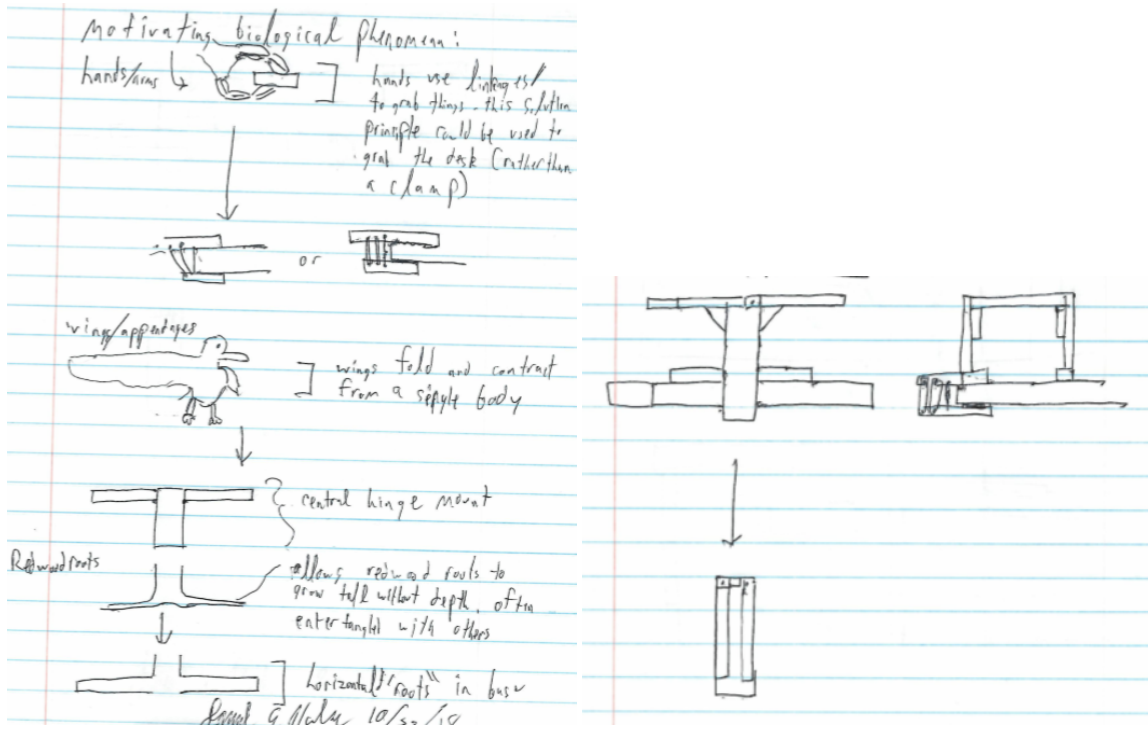 motivating biological phenomena:
hands/arms
hands use linkages/
to grab things. this solution
principle could be used to
grab the desk (rather than
a clamp)
or
wings/appendages
wings fold and contract
from a single body
central hinge mount
Redwood roots
allows redwood roots to
grow tall without depth, often
entertangled with others
horizontal "roots" in base
10/